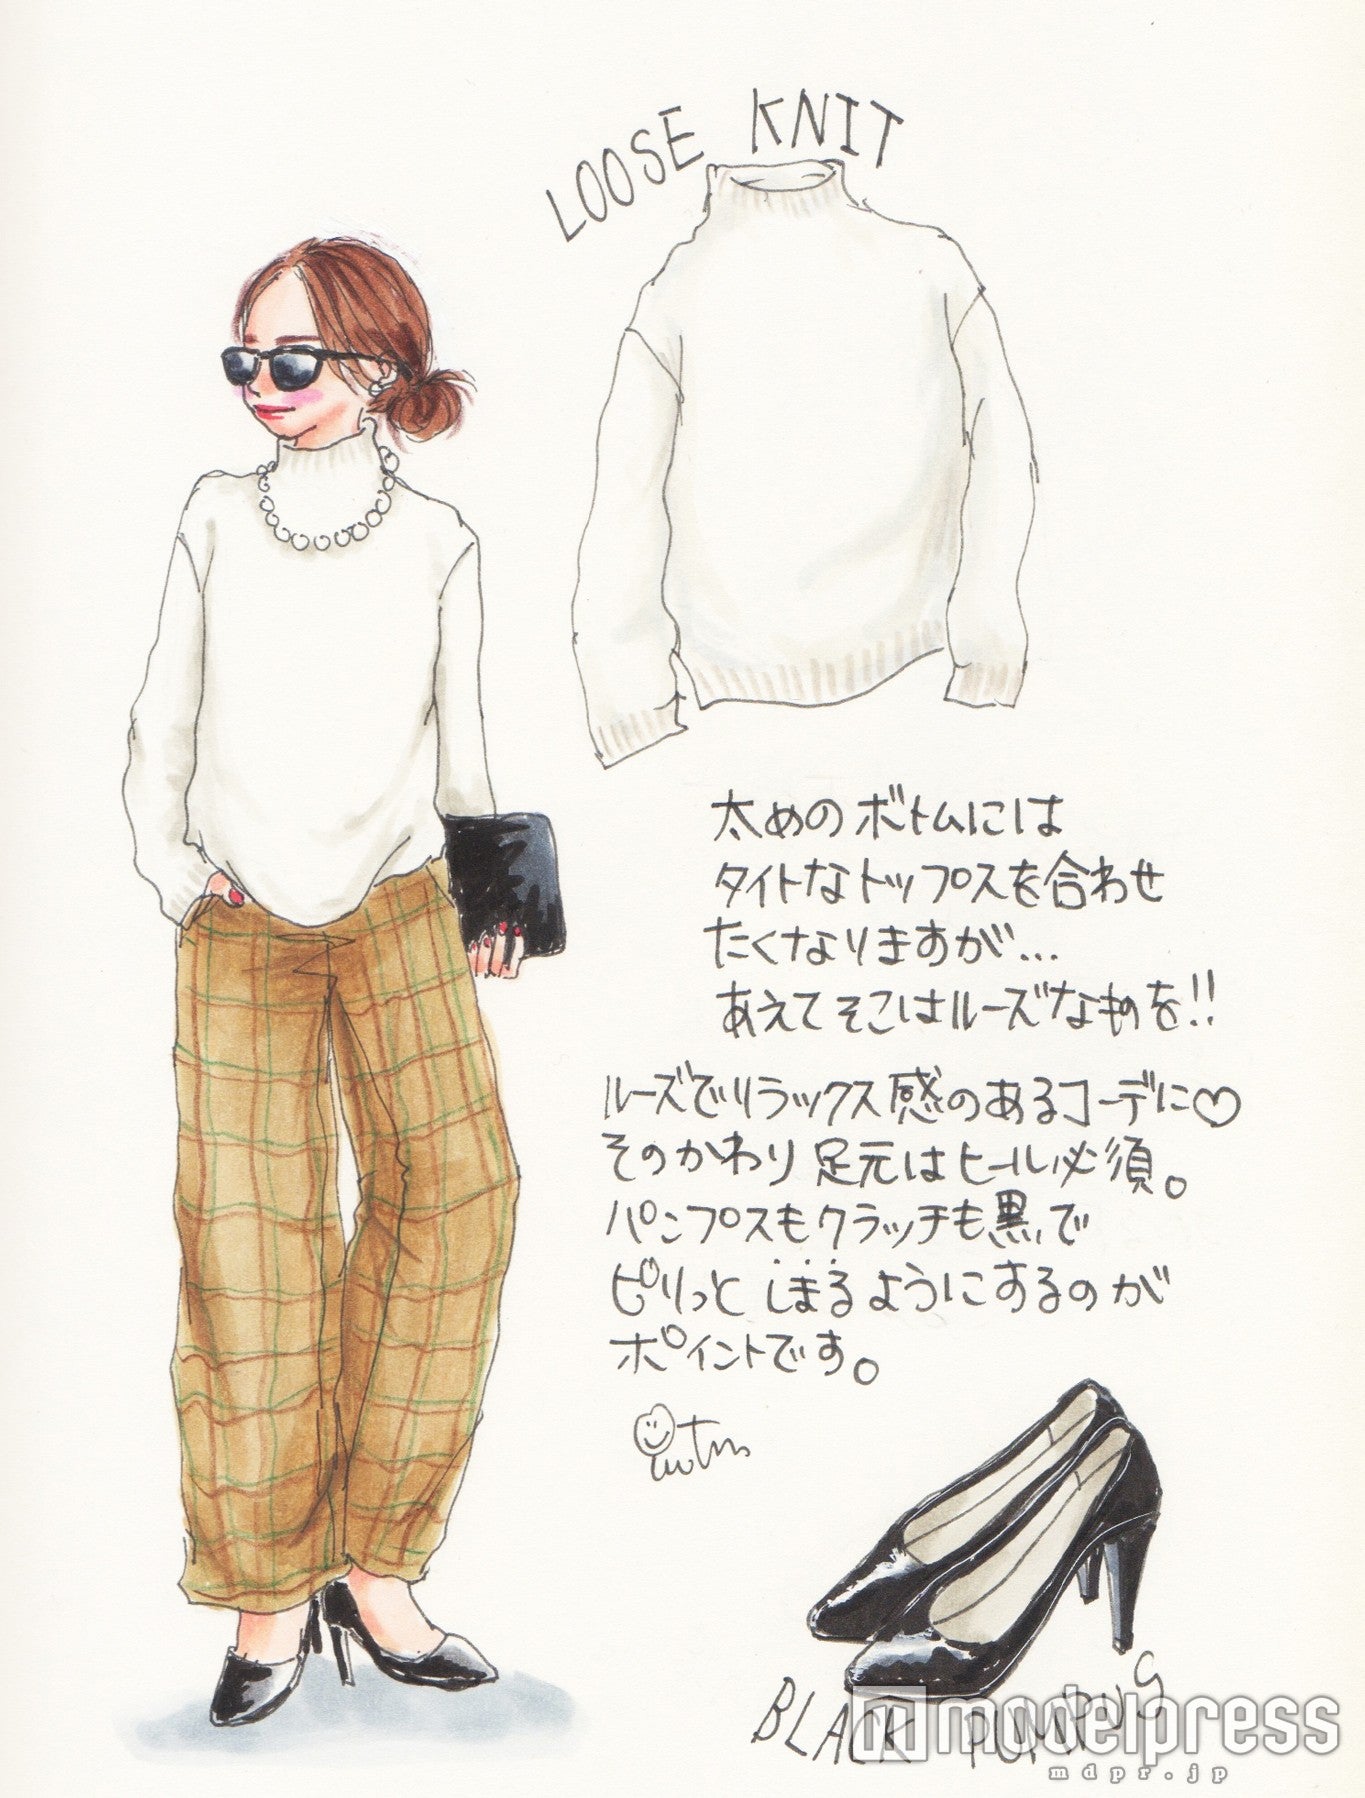 LOOSE KNIT
太めのボトムには
タイトなトップスを合わせ
たくなりますが…
あえてそこはルーズなものを!!
ルーズでリラックス感のあるコーデに♡
そのかわり足元はヒール必須。
パンプスもクラッチも黒で
ピリっとしまるようにするのが
ポイントです。
BLACK PUMPUS
modelpress
mdpr.jp